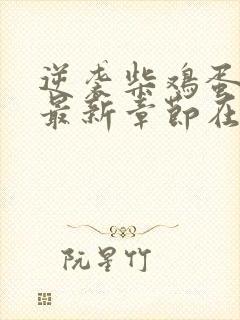 逆袭柴鸡蛋
最新章节在
阮星竹